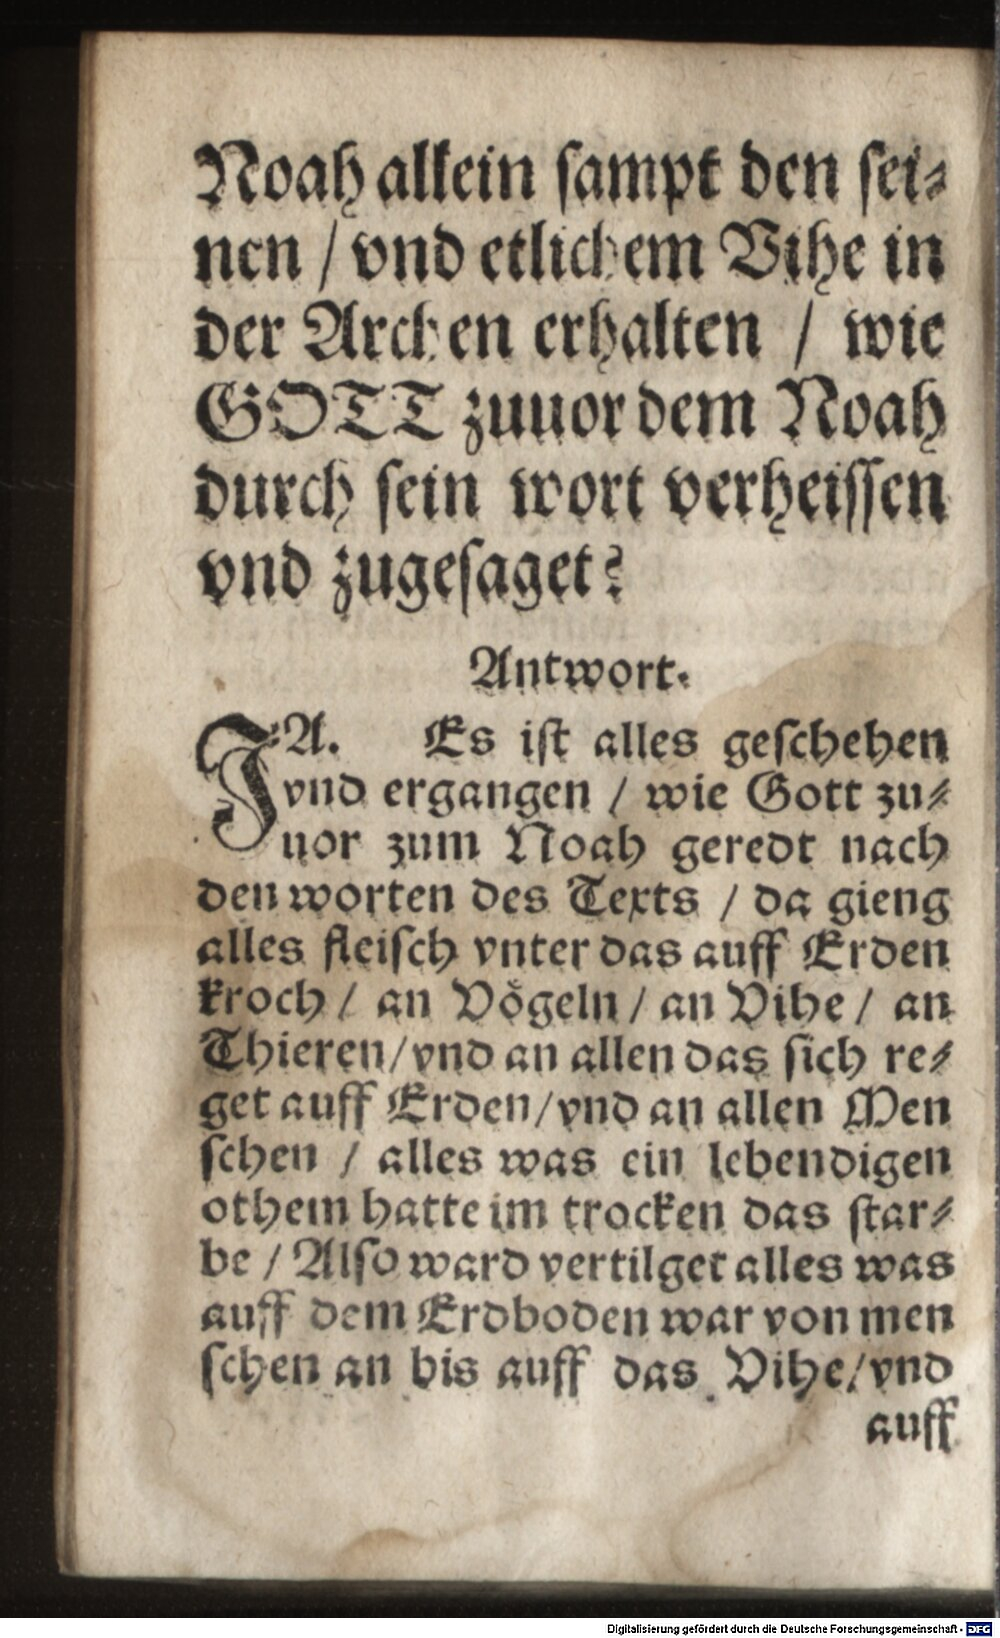 Noah allein sampt den sei⸗
nen / vnd etlichem Vihe in
der Archen erhalten / wie
GOTT zuuor dem Noah
durch sein wort verheissen
vnd zugesaget?
Antwort.
JA. Es ist alles geschehen
vnd ergangen / wie Gott zu⸗
uor zum Noah geredt nach
den worten des Texts / da gieng
alles fleisch vnter das auff Erden
kroch / an Vögeln / an Vihe / an
Thieren / vnd an allen das sich re⸗
get auff Erden / vnd an allen Men
schen / alles was ein lebendigen
othem hatte im trocken das star⸗
be / Also ward vertilget alles was
auff dem Erdboden war von men
schen an bis auff das Vihe / vnd
auff
Digitalisierung gefördert durch die Deutsche Forschungsgemeinschaft - DFG